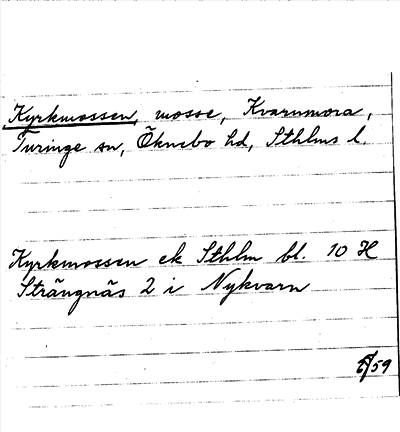 Kyrkmossen, mosse, Kvarnmora,
Turinge sn, Öknebo hd, Sthlms l.
Kyrkmossen ek Sthlm bl. 10 H
Strängnäs 2 i Nykvarn
/59